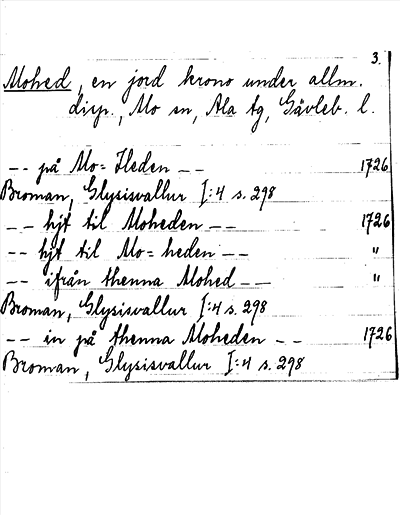 3.
Mohed, en jord krono under allm.
disp., Mo sn, Ala tg, Gävleb. l.
-- på Mo=Heden -- 1726
Broman, Glysisvallur I:4 s. 298
-- hjt til Moheden -- 1726
-- hjt til Mo=heden -- "
-- ifrån thenna Mohed -- "
Broman, Glysisvallur I:4 s. 298
-- in på thenna Moheden -- 1726
Broman, Glysisvallur I:4 s. 298